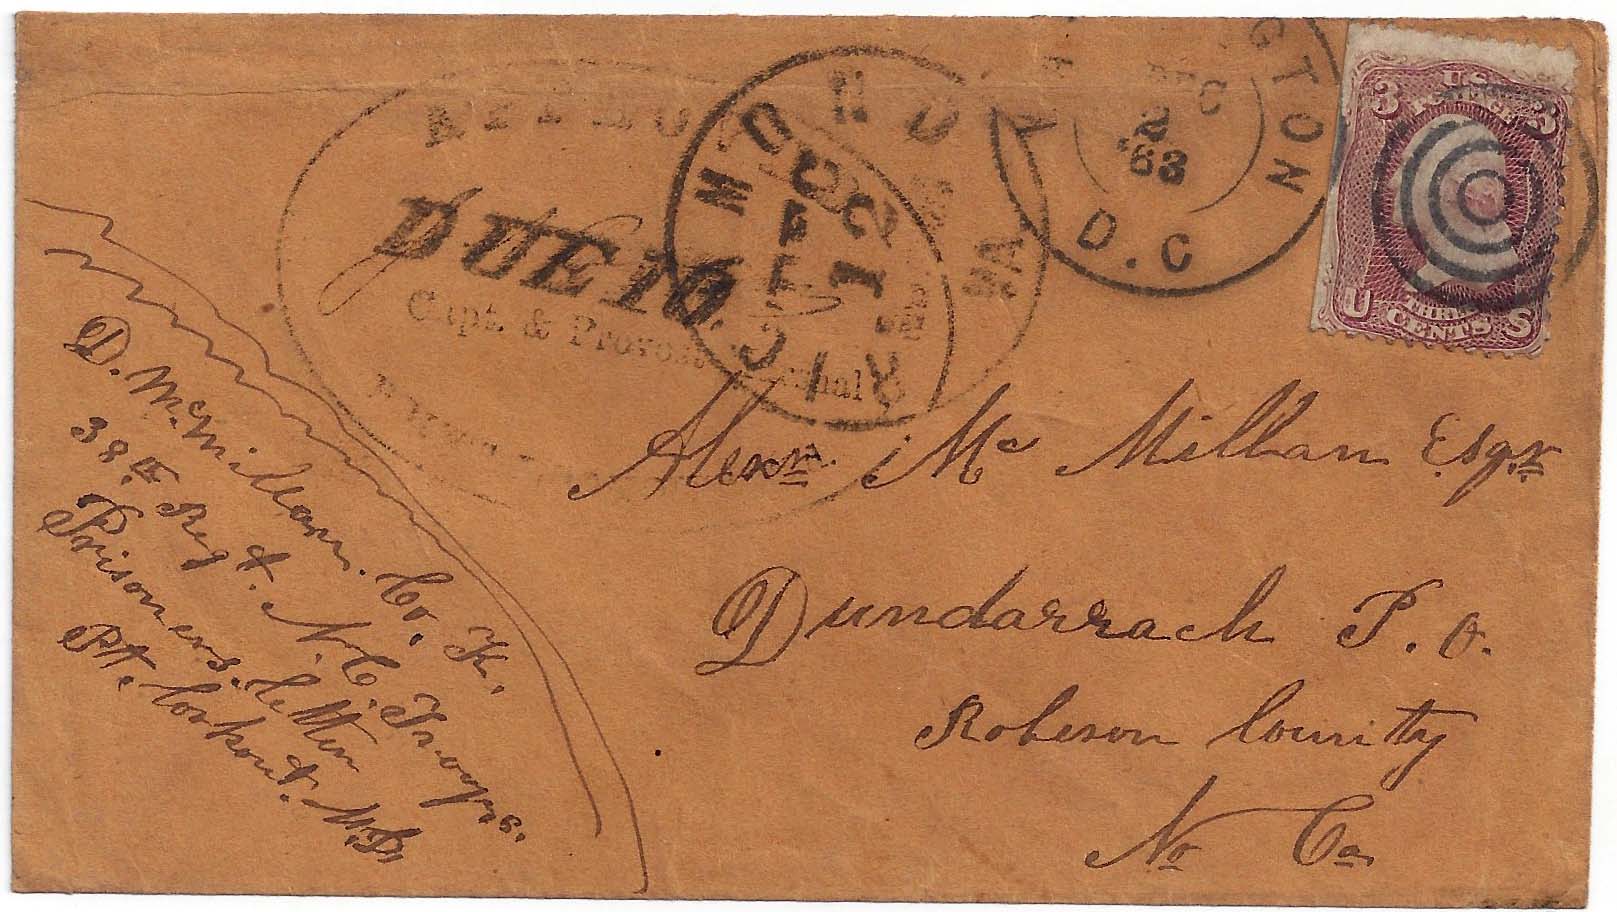 WASHINGTON
DEC
2
'63
D.C
3 3
U.S.
POSTAGE
THREE
U S
CENTS
RICHMOND
VA.
DEC
21
DUE 10.
Capt. & Provost Marshal
Alexr. Mc Millan Esqr.
Dundarrach P. O.
Robeson County
No Ca
D. McMillan. Co. K.
38th Regt. N.C. Troops.
Prisoners. letter
Pt. Lookout. Md.